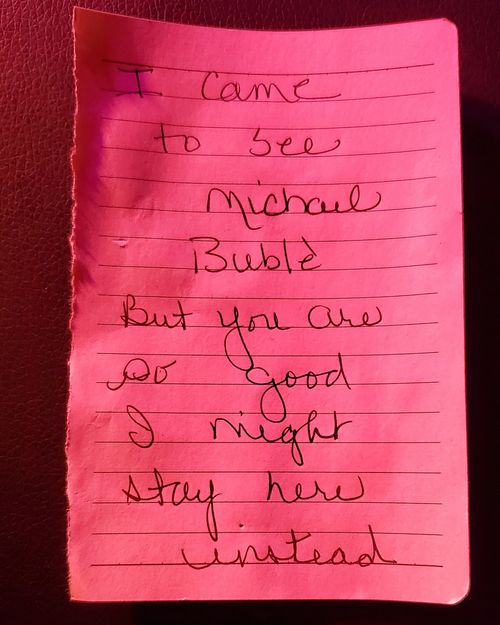 I came
to see
Michael
Bublè
But you are
so good
I might
stay here
instead